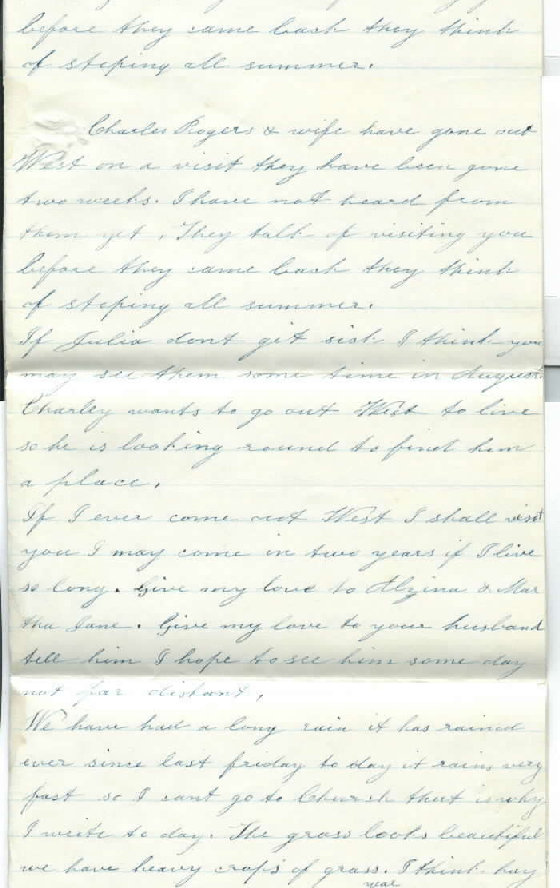 before they came back they think
of stoping all summer.
Charles Rogers & wife have gone out
West on a visit they have been gone
two weeks. I have not heard from
them yet. They talk of visiting you
before they came back they think
of stoping all summer.
If Julia dont get sick I think you
may see them some time in August.
Charley wants to go out West to live
so he is looking round to find him
a place.
If I ever come out West I shall visit
you I may come in two years if I live
so long. Give my love to Alzina & Mar
tha Jane. Give my love to your husband
tell him I hope to see him some day
not far distant,
We have had a long rain it has rained
ever since last friday to day it rains very
fast so I cant go to Church that is why
I write to day. The grass looks beautiful
we have heavy crops of grass. I think hay